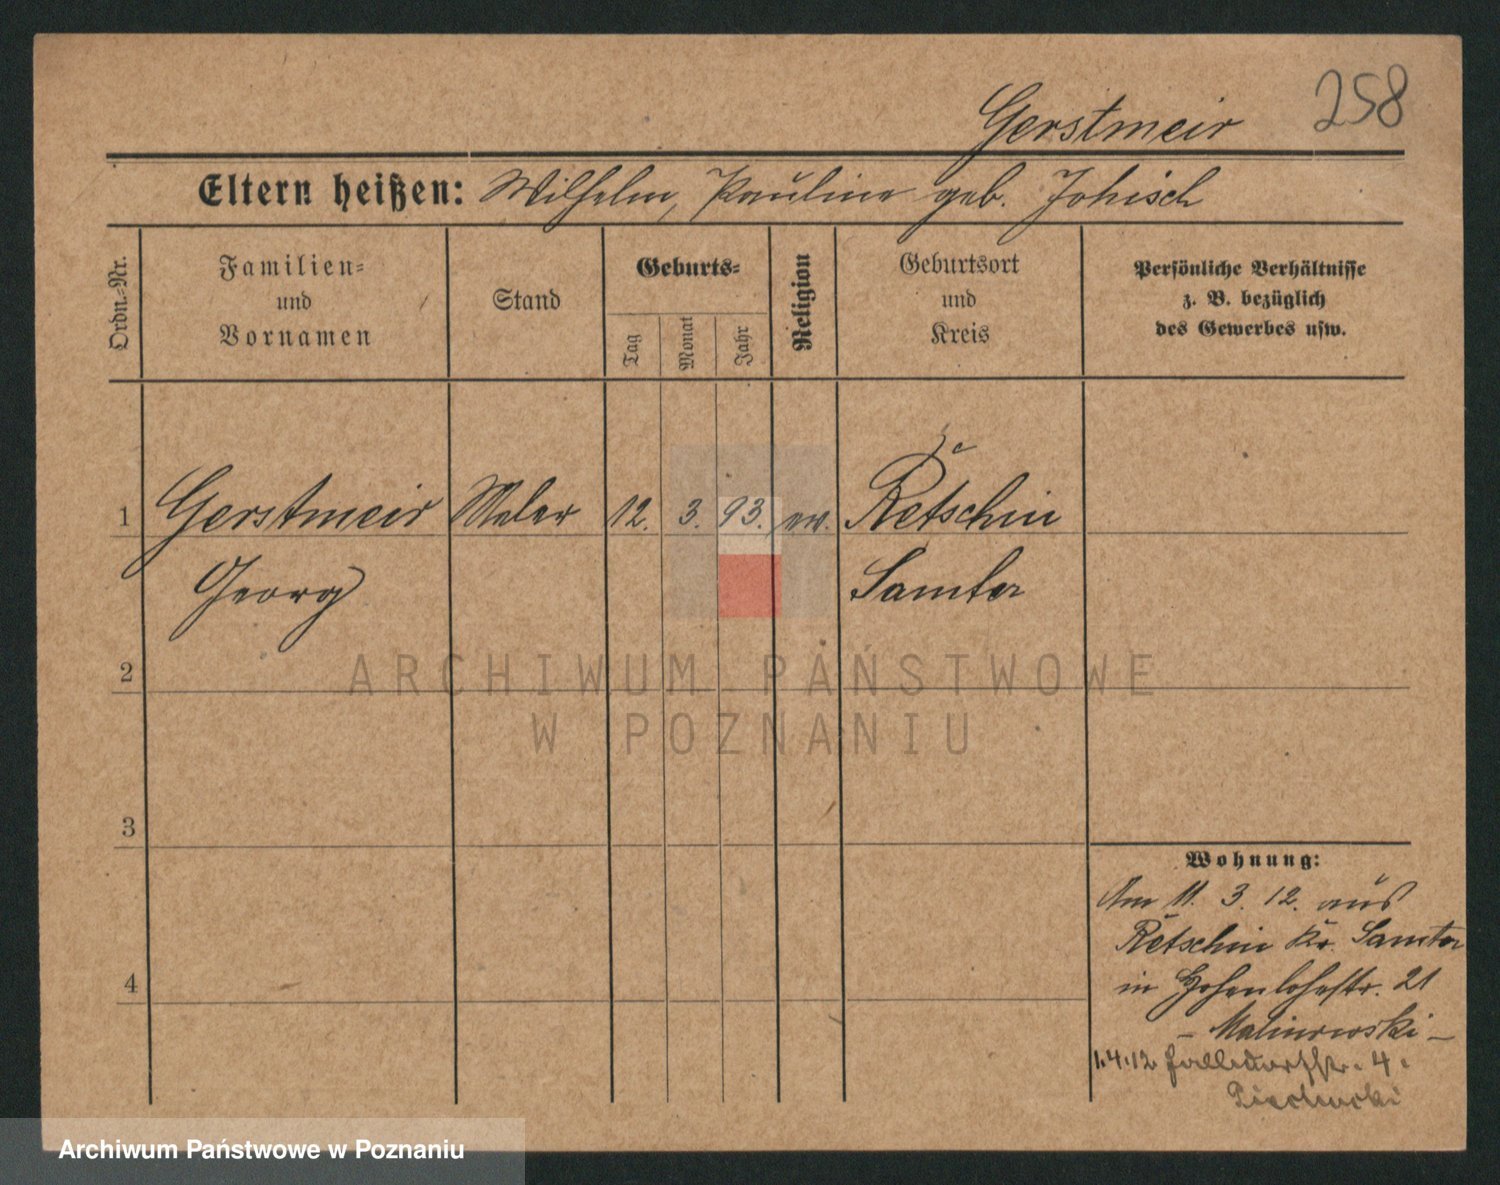 258
Gerstmeir
Eltern heißen: Wilhelm, Pauline geb. Johisch
Ordn.-Nr.
Familien-
und
Vornamen
Stand
Geburts-
Tag
Monat
Jahr
Religion
Geburtsort
und
Kreis
Persönliche Verhältnisse
z. B. bezüglich
des Gewerbes usw.
1 Gerstmeir Maler 12. 3. 93. ev. Retschin
Georg Samter
2
3
4
Wohnung:
Am 11. 3. 12. aus
Retschin Kr. Samter
in Hohenlohestr. 21
– Malinowski –
1.4.12 4.
ARCHIWUM PAŃSTWOWE
W POZNANIU
Archiwum Państwowe w Poznaniu